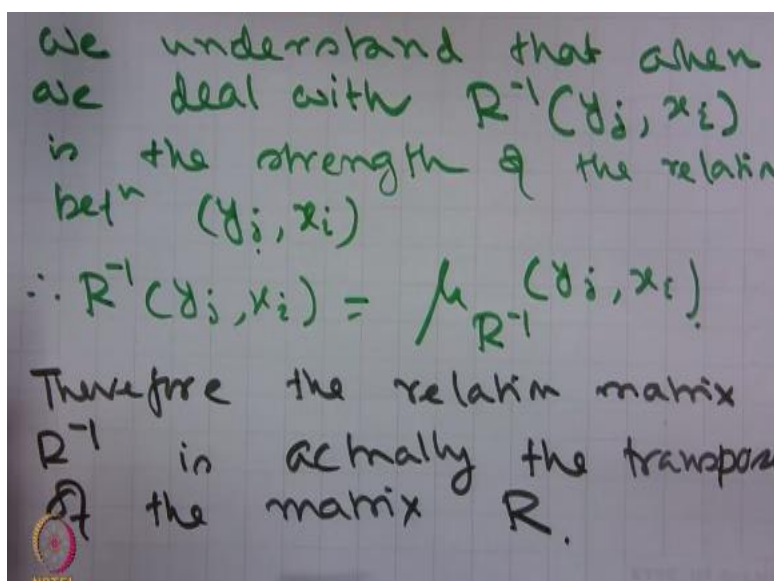 we understand that when
we deal with R⁻¹(yⱼ, xᵢ)
is the strength of the relation
betⁿ (yⱼ, xᵢ)
∴ R⁻¹(yⱼ, xᵢ) = μ_R⁻¹ (yⱼ, xᵢ).
Therefore the relation matrix
R⁻¹ is actually the transpos
of the matrix R.
NPTEL